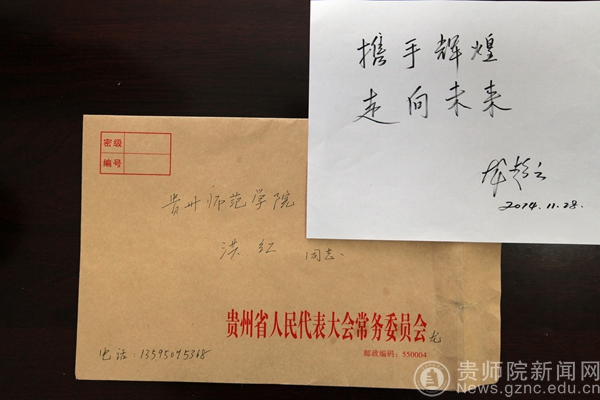 携手辉煌
走向未来
龙超云
2014.11.28.
密级
编号
贵州师范学院
洪红 同志
贵州省人民代表大会常务委员会 龙
邮政编码：550004
电话：13595045368
贵师院新闻网
News.gznc.edu.cn